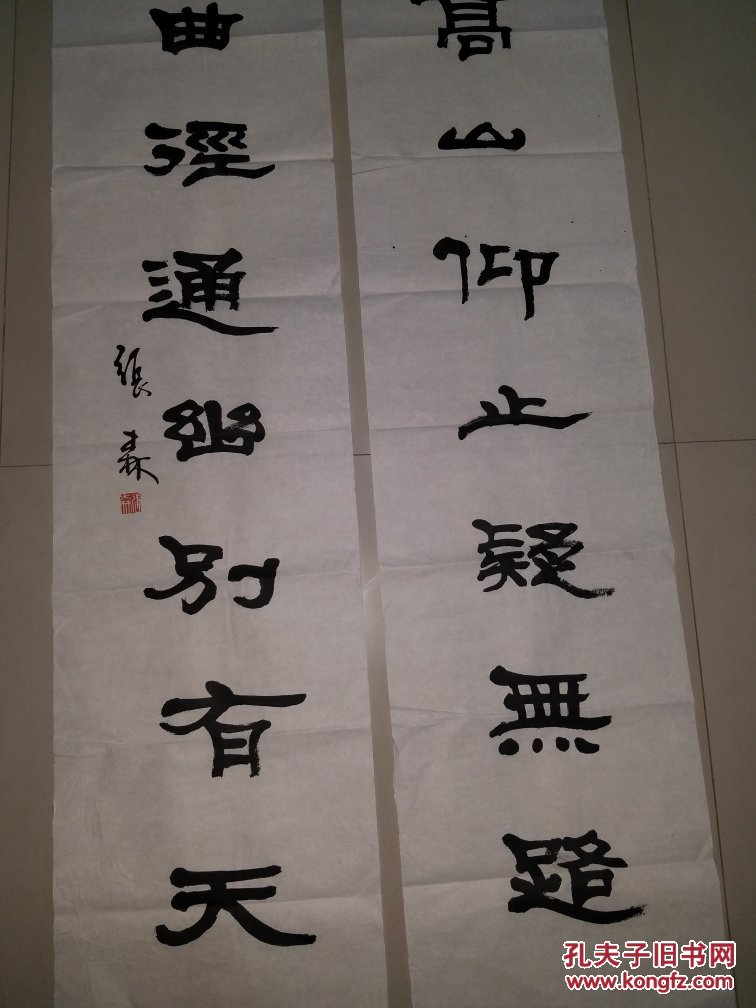 高山仰止疑無路
曲徑通幽別有天
張森
孔夫子旧书网
www.kongfz.com